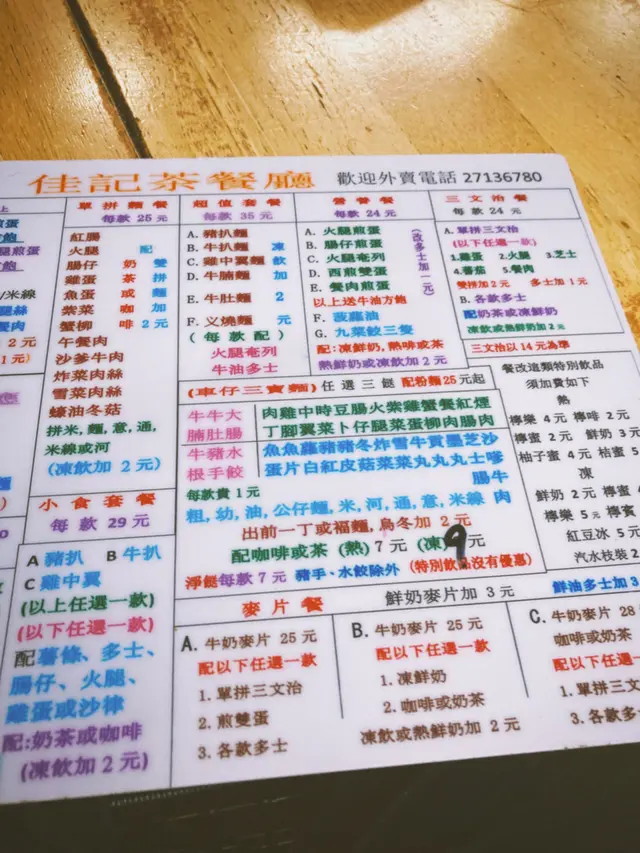 佳記茶餐廳 歡迎外賣電話 27136780
單拼麵餐
每款 25 元
紅腸
火腿
腸仔
雞蛋
魚蛋
紫菜
蟹柳
午餐肉
沙爹牛肉
炸菜肉絲
雪菜肉絲
蠔油冬菇
配
奶茶或咖啡
雙拼麵加 2 元
拼米,麵,意,通,
米線或河
(凍飲加 2 元)
超值套餐
每款 35 元
A. 豬扒麵
B. 牛扒麵
C. 雞中翼麵
D. 牛腩麵
E. 牛肚麵
F. 义燒麵
凍飲加 2 元
(每款配)
火腿奄列
牛油多士
營養餐
每款 24 元
A. 火腿煎蛋
B. 腸仔煎蛋
C. 火腿奄列
D. 西煎雙蛋
E. 餐肉煎蛋
(改多士加一元)
以上送牛油方飽
F. 菠蘿油
G. 九菜餃三隻
配:凍鮮奶,熱啡或茶
熱鮮奶或凍飲加 2 元
三文治餐
每款 24 元
A. 單拼三文治
(以下任選一款)
1.雞蛋 2.火腿 3.芝士
4.蕃茄 5.餐肉
雙拼加 2 元 多士加 1 元
B. 各款多士
配奶茶或凍鮮奶
凍飲或熱鮮奶加 2 元
三文治以 14 元為準
(車仔三寶麵)任選三餸 配粉麵25元起
牛牛大
腩肚腸
肉雞中時豆腸火紫雞蟹餐紅煙
丁腳翼菜卜仔腿菜蛋柳肉腸肉
牛豬水
根手餃
魚魚蘿豬豬冬炸雪牛貢墨芝沙
蛋片白紅皮菇菜菜丸丸丸士嗲
腸牛
肉
每款貴 1 元
粗,幼,油,公仔麵,米,河,通,意,米線
出前一丁或福麵,烏冬加 2 元
配咖啡或茶 (熱) 7 元 (凍) 9 元
淨餸每款 7 元 豬手、水餃除外 (特別飲品沒有優惠)
餐改進類特別飲品
須加費如下
熱
檸樂 4 元 檸啡 2 元
檸蜜 2 元 鮮奶 3 元
柚子蜜 4 元 桔蜜 5
凍
鮮奶 2 元 檸蜜
檸樂 5 元 檸賓
紅豆冰 5 元
汽水枝裝 2
小食套餐
每款 29 元
A 豬扒 B 牛扒
C 雞中翼
(以上任選一款)
(以下任選一款)
配薯條、多士、
腸仔、火腿、
雞蛋或沙律
配:奶茶或咖啡
(凍飲加 2 元)
麥片餐 鮮奶麥片加 3 元 鮮油多士加 3
A. 牛奶麥片 25 元
配以下任選一款
1. 單拼三文治
2. 煎雙蛋
3. 各款多士
B. 牛奶麥片 25 元
配以下任選一款
1. 凍鮮奶
2. 咖啡或奶茶
凍飲或熱鮮奶加 2 元
C. 牛奶麥片 28
咖啡或奶茶
配以下任選一款
1. 單拼三文治
3. 各款多士